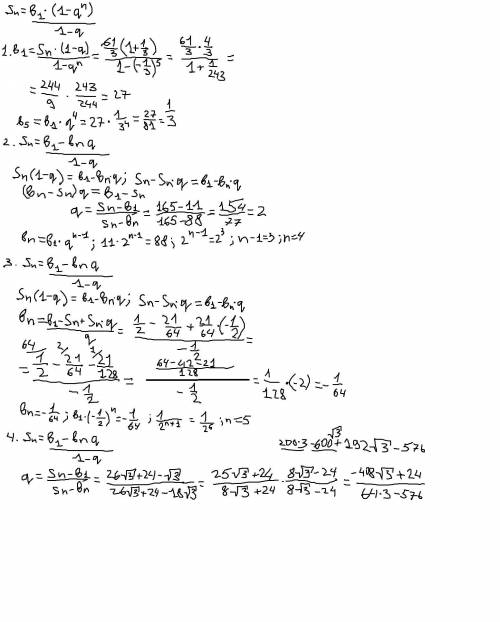 Sn = b₁·(1-qⁿ) / 1-q
1. b₁ = Sn·(1-q) / 1-qⁿ = 61/3 (1+1/3) / 1-(-1/3)⁵ = 61/3 · 4/3 / 1+1/243 =
= 244/9 · 243/244 = 27
b₅ = b₁·q⁴ = 27 · 1/3⁴ = 27/81 = 1/3
2. Sn = b₁-bnq / 1-q
Sn(1-q) = b₁-bn·q; Sn-Sn·q = b₁-bn·q
(bn-Sn)q = b₁-Sn
q = Sn-b₁ / Sn-bn = 165-11 / 165-88 = 154/77 = 2
bn = b₁·qⁿ⁻¹; 11·2ⁿ⁻¹ = 88; 2ⁿ⁻¹ = 2³; n-1=3; n=4
3. Sn = b₁-bnq / 1-q
Sn(1-q) = b₁-bn·q; Sn-Sn·q = b₁-bn·q
bn = b₁-Sn+Sn·q / q = 1/2 - 21/64 + 21/64·(-1/2) / -1/2 =
= 64/ 1/2 - 2/ 21/64 - 1/ 21/128 / -1/2 = 64-42-21 / 128 / -1/2 = 1/128·(-2) = -1/64
bn = -1/64; b₁·(-1/2)ⁿ = -1/64; 1/2ⁿ⁺¹ = 1/2⁶; n=5
4. Sn = b₁-bnq / 1-q
200·3-600√3+192√3-576
q = Sn-b₁ / Sn-bn = 26√3+24-√3 / 26√3+24-18√3 = 25√3+24 / 8√3+24 · 8√3-24 / 8√3-24 = -408√3+24 / 64·3-576